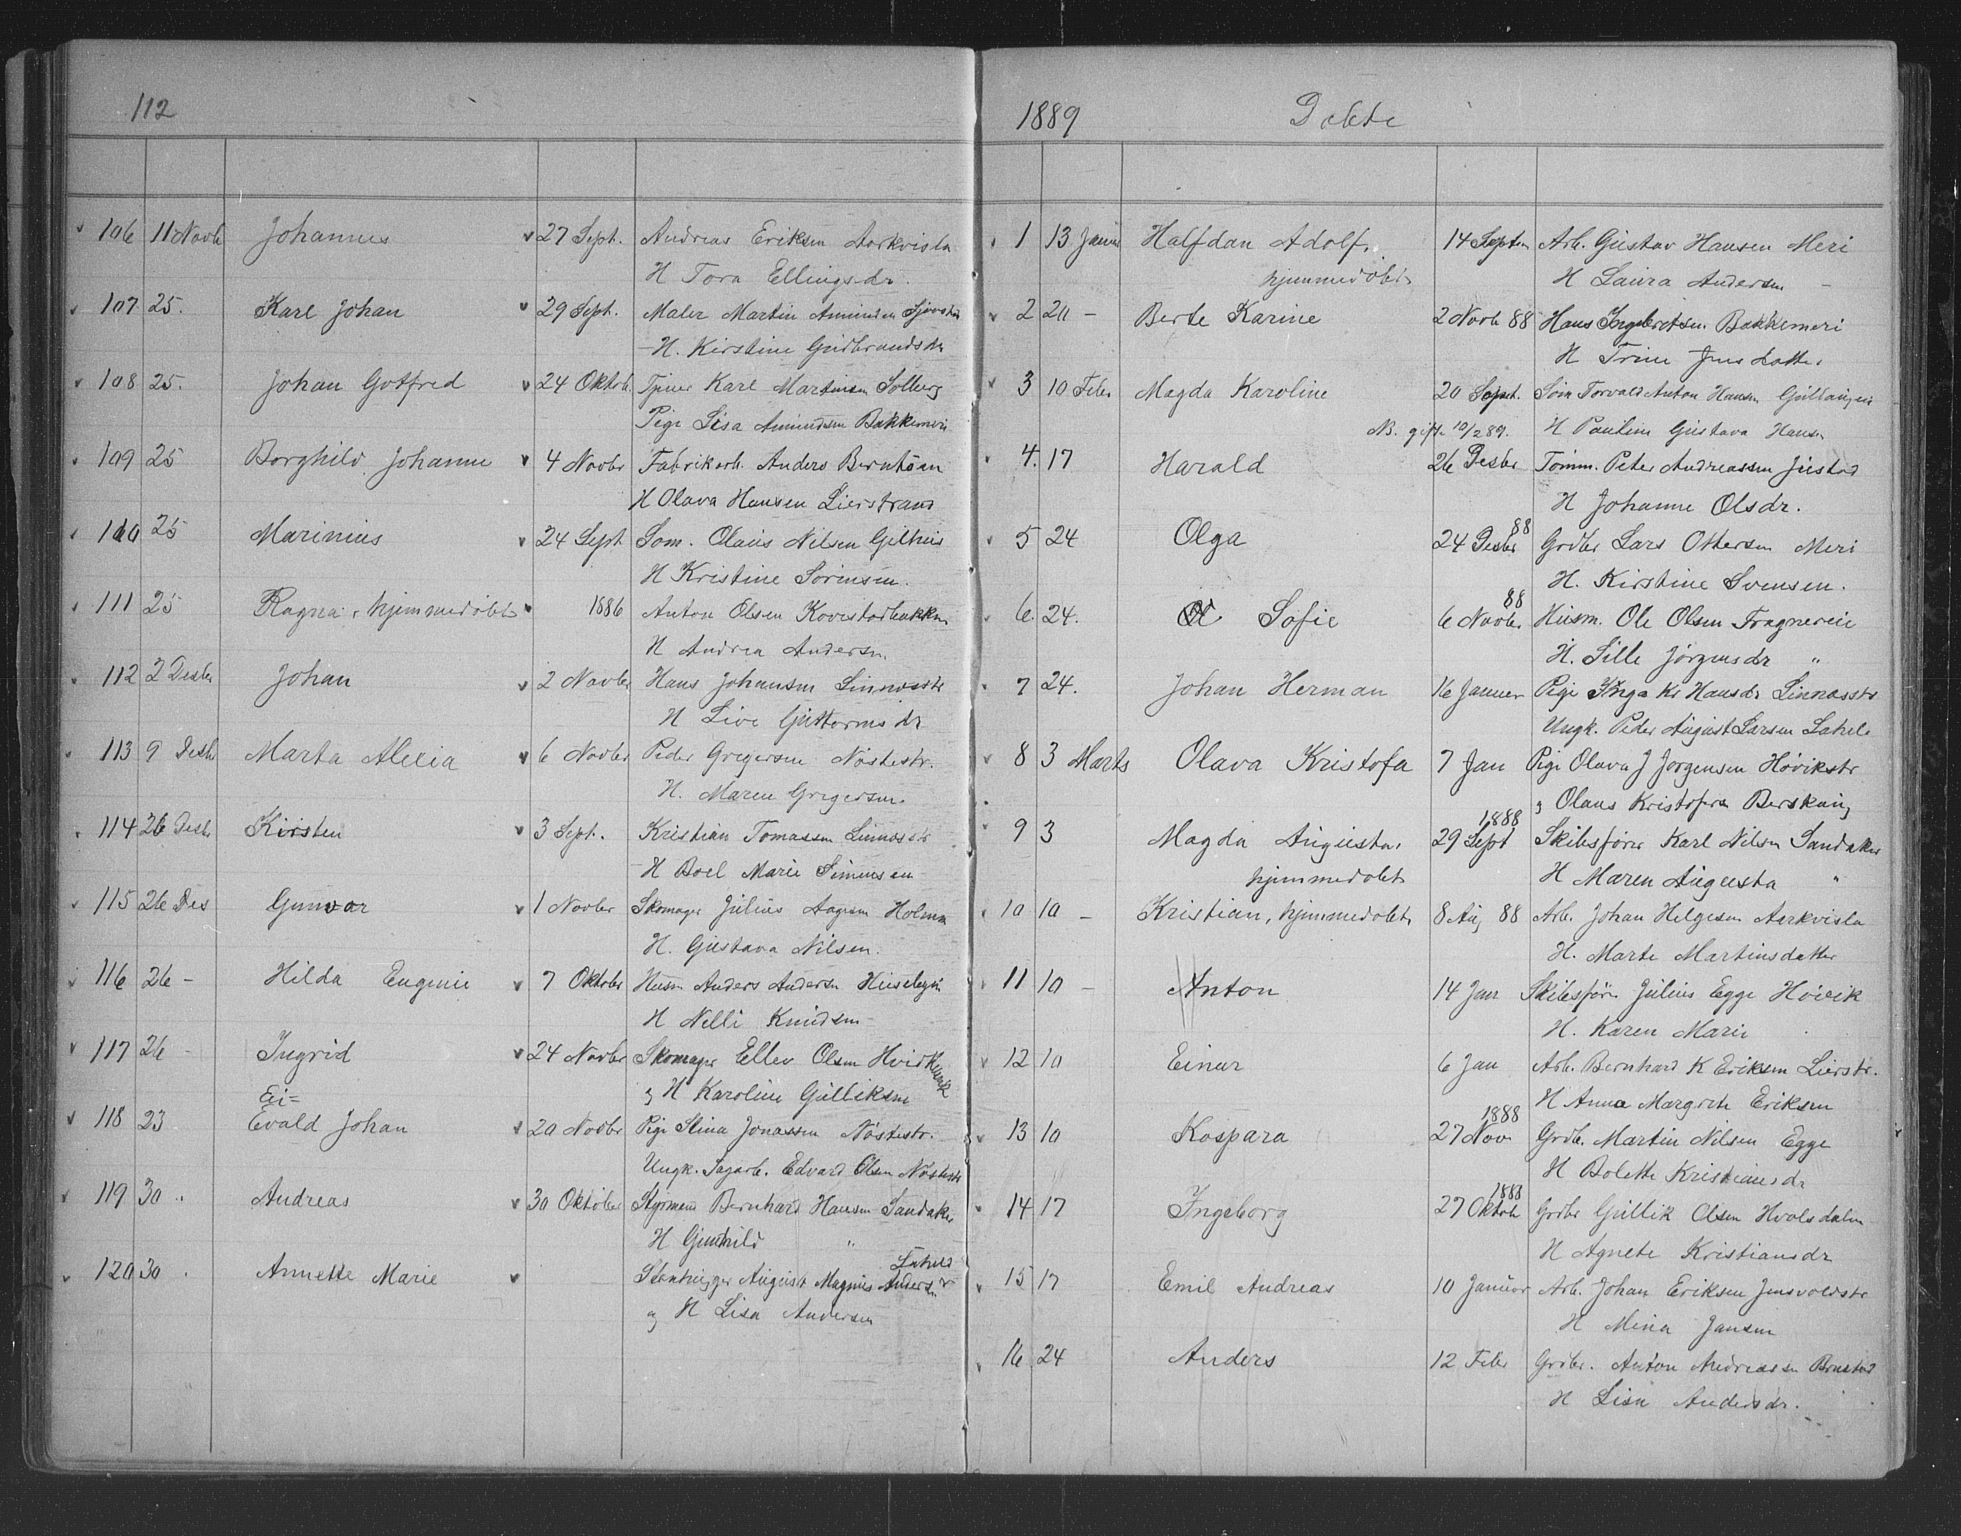 112
106 11 Novb Johannes 27 Sept. Andreas Eriksen Aarkvisla
H Tora Ellingsdr.
107 25. Karl Johan 29 Sept. Maler Martin Amundsen
H. Kirstine Gudbrandsdr
108 25. Johan Gotfred 24 Oktob Tjener Karl Martinsen Solberg
Pige Lisa Amundsen Bakkemeri
109 25 Borghild Johanne 4 Novbr Fabrikarb. Anders Berntsen
H Olava Hansen Lierstrand
110 25 Marinius 24 Sept Søm. Olaus Nilsen Gilhus
H Kristine Sørensen.
111 25 Ragna, hjemmedøbt 1886 Anton Olsen
H Andrea Andersen.
112 2 Desbr Johan 2 Novbr Hans Johansen Linnesstr
H Live Guttormsdr
113 9 Desb Marta Alexia 6 Novbr Peder Gregersen Nøstestr.
H. Maren Gregersen.
114 26 Desb Kirsten 3 Sept. Kristian Tomassen Linnesstr
H Boel Marie Simensen
115 26 Des Gunvor 1 Novbr Skomager Julius Aagesen Holmen
H. Gustava Nilsen.
116 26 - Hilda Eugenie 7 Oktober Husm Anders Andersen
H Nelli Knudsen
117 26 - Ingrid 24 Novbr Skomager Ellev Olsen
og H Karoline Gulliksen
Ei=
118 23 Evald Johan 20 Novbr Pige Stina Jonassen Nøstestr.
Ungk. Sagarb. Edvard Olsen Nøstestr
119 30. Andreas 30 Oktober Styrmand Bernhard Hansen Sandaker
H Gunhild "
120 30. Annette Marie Stenhugger August Magnus Andersen
og H Lisa Andersen
1889 Døbte
1 13 Januar Halfdan Adolf, 14 Septem Arb. Gustav Hansen Meri
hjemmedøbt H Laura Andersen
2 20 - Berte Karine 2 Novb 88 Hans Ingebretsen Bakkemeri
H Trine Jensdatter
3 10 Febr Magda Karoline 20 Sept. Søm Torvald Anton Hansen Gullaugen
NB. gift 10/2 89. H Pauline Gustava Hansen
4. 17 Harald 26 Desbr Tømm. Peter Andreassen Justad
H Johanne Olsdr.
5 24 Olga 24 Desbr 88 Grdbr Lars Ottersen Meri
H. Kirstine Svensen.
6 24. Sofie 6 Novbr. 88 Husm. Ole Olsen Fragnereie
H. Sille Jörgensdr "
7 24. Johan Herman 16 Januar Pige Inga Kr Hansdr Linnesstr
Ungk. Peder August Larsen Lahell
8 3 Marts Olava Kristofa 7 Jan Pige Olava J Jørgensen Høvikstr
og Olaus Kristofersen Berskaug
9 3 Magda Augusta, 29 Sept 1888 Skibsfører Karl Nilsen Sandaker
hjemmedøbt H Maren Augusta "
10 10 - Kristian, hjemmedøbt, 8 Aug 88 Arb. Johan Helgesen Aarkvisla
H. Marte Martinsdatter
11 10 - Anton 14 Jan Skibsfør. Julius Egge Høvik
H. Karen Marie
12 10 Einar 6 Jan Arb. Bernhard K Eriksen Lierstr.
H Anna Margrete Eriksen
13 10 Kaspara 27 Nov 1888 Grdb. Martin Nilsen Egge
H Bolette Kristiansdr
14 17 Ingeborg 27 Oktob 1888 Grdbr Gullik Olsen Hvalsdalen
H Agnete Kristiansdr
15 17 Emil Andreas 10 Januar Arb. Johan Eriksen Jensvoldstr
H Mina Jansen
16 24 Anders 12 Febr Grdbr. Anton Andreassen
H Lisa Andersdr.